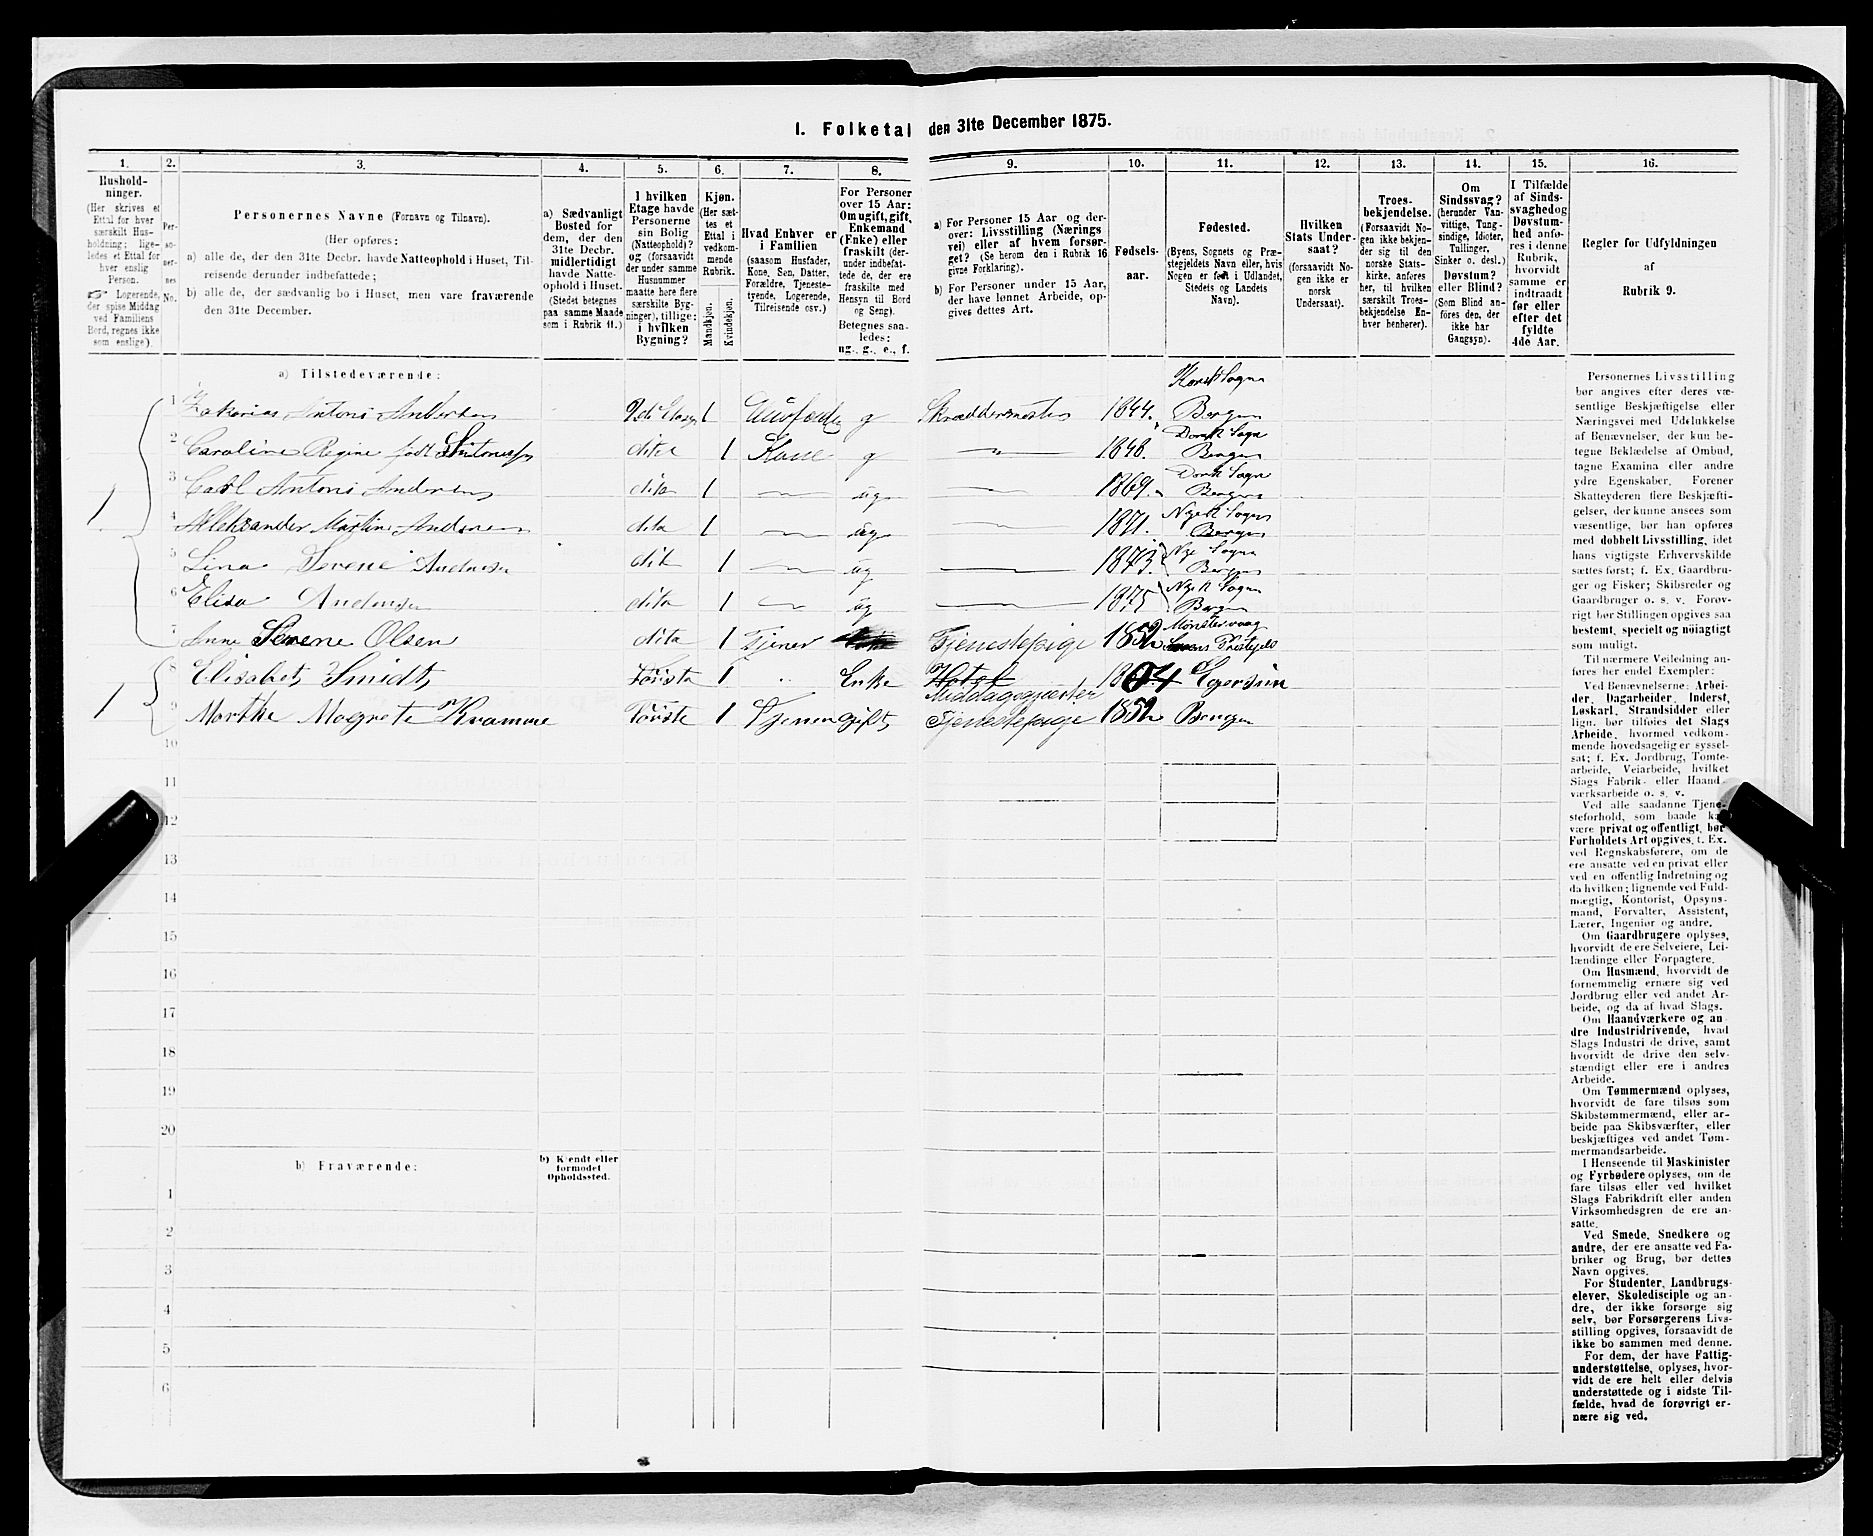 I. Folketal den 31te December 1875.
1. 2. 3. 4. 5. 6. 7. 8. 9. 10. 11. 12. 13. 14. 15. 16.
Hushold-
ninger.
(Her skrives et
Ettal for hver
særskilt Hus-
holdning; lige-
ledes et Ettal for
hver enslig
Person.
☞ Logerende,
der spise Middag
ved Familiens
Bord, regnes ikke
som enslige).
Per-
so-
ner-
nes
No.
Personernes Navne (Fornavn og Tilnavn).
(Her opføres:
a) alle de, der den 31te Decbr. havde Natteophold i Huset, Til-
reisende derunder indbefattede;
b) alle de, der sædvanlig bo i Huset, men vare fraværende
den 31te December.
a) Sædvanligt
Bosted for
dem, der den
31te Decbr.
midlertidigt
havde Natte-
ophold i Huset.
(Stedet betegnes
paa samme Maade
som i Rubrik 11.)
I hvilken
Etage havde
Personerne
sin Bolig
(Natteophold)?
og (forsaavidt
der under samme
Husnummer
maatte høre flere
særskilte Byg-
ninger), tillige:
i hvilken
Bygning?
Kjøn.
(Her sæt-
tes et
Ettal i
vedkom-
mende
Rubrik.
Mandkjøn.
Kvindekjøn.
Hvad Enhver er
i Familien
(saasom Husfader,
Kone, Søn, Datter,
Forældre, Tjeneste-
tyende, Logerende,
Tilreisende osv.)
For Personer
over 15 Aar:
Om ugift, gift,
Enkemand
(Enke) eller
fraskilt (der-
under indbefat-
tede de, der ere
fraskilte med
Hensyn til Bord
og Seng).
Betegnes saa-
ledes:
ug., g., e., f.
a) For Personer 15 Aar og der-
over: Livsstilling (Nærings
vei) eller af hvem forsør-
get? (Se herom den i Rubrik 16
givne Forklaring).
b) For Personer under 15 Aar,
der have lønnet Arbeide, op-
gives dettes Art.
Fødsels-
aar.
Fødested.
(Byens, Sognets og Præ-
stegjeldets Navn eller, hvis
Nogen er født i Udlandet,
Stedets og Landets
Navn).
Hvilken
Stats Under-
saat?
(forsaavidt No-
gen ikke er
norsk
Undersaat).
Troes-
bekjendelse.
(Forsaavidt No-
gen ikke bekjen-
der sig til den
norske Stats-
kirke, anføres
her, til hvilken
særskilt Troes-
bekjendelse En-
hver henhører).
Om
Sindssvag?
(herunder Van-
vittige, Tung-
sindige, Idioter,
Tullinger,
Sinker o. desl.)
Døvstum?
eller Blind?
(Som Blind an-
føres den, der
ikke har
Gangsyn).
I Tilfælde
af Sinds-
svaghed og
Døvstum-
hed anfø-
res i denne
Rubrik,
hvorvidt
samme er
indtraadt
før eller
efter det
fyldte
4de Aar.
Regler for Udfyldningen
af
Rubrik 9.
a) Tilstedeværende:
1 Zakarias Antoni Andersen g Skræddermester 1844. Bergen
2 Caroline Regine født dita 1 Kone g 1848. Domk Sogn Bergen
3 Carl Antoni Andersen dita 1 ug 1869. Domk Sogn Bergen
4 Aleksander Martin Andersen dita 1 ug 1871. Nyek Sogn Bergen
5 Lina Serene Andersen dita 1 ug 1873. Nye Sogn Bergen
6 Elisa Andersen dita 1 ug 1875 Nyek Sogn Bergen
7 Anne Serene Olsen dita 1 Tjener Tjenestepige 1852
8 Elisabet Smidt Første 1 Enke Middagsgjæster 1804 Egersun
9 Marthe Magrete Første 1 Tjener gift Tjenestepige 1852 Bergen
1
1
10
11
12
13
14
15
16
17
18
19
20
b) Fraværende:
b) Kjendt eller
formodet
Opholdssted.
1
2
3
4
5
6
Personernes Livsstilling
bør angives efter deres væ-
sentlige Beskjæftigelse eller
Næringsvei med Udelukkelse
af Benævnelser, der kun be-
tegne Beklædelse af Ombud,
tagne Examina eller andre
ydre Egenskaber. Forener
Skatteyderen flere Beskjæfti-
gelser, der kunne ansees som
væsentlige, bør han opføres
med dobbelt Livsstilling, idet
hans vigtigste Erhvervskilde
sættes først; f. Ex. Gaardbru-
ger og Fisker; Skibsreder og
Gaardbruger o. s. v. Forøv-
rigt bør Stillingen opgives saa
bestemt, specielt og nøiagtigt
som muligt.
Til nærmere Veiledning an-
føres her endel Exempler:
Ved Benævnelserne: Arbei-
der, Dagarbeider, Inderst,
Løskarl, Strandsidder eller
lign. bør tilføies det Slags
Arbeide, hvormed vedkom-
mende hovedsagelig er syssel-
sat; f. Ex. Jordbrug, Tomte-
arbeide, Veiarbeide, hvilket
Slags Fabrik- eller Haand-
værksarbeide o. s. v.
Ved alle saadanne Tjene-
steforhold, som baade kan
være privat og offentligt, bør
Forholdets Art opgives, t. Ex.
ved Regnskabsførere, om de
ere ansatte ved en privat eller
ved en offentlig Indretning og
da hvilken; lignende ved Fuld-
mægtig, Kontorist, Opsyns-
mand, Forvalter, Assistent,
Lærer, Ingeniør og andre.
Om Gaardbrugere oplyses,
hvorvidt de ere Selveiere, Lei-
lændinge eller Forpagtere.
Om Husmænd, hvorvidt de
fornemmelig ernære sig ved
Jordbrug eller ved andet Ar-
beide, og da af hvad Slags.
Om Haandværkere og an-
dre Industridrivende, hvad
Slags Industri de drive, samt
hvorvidt de drive den selv-
stændigt eller ere i andres
Arbeide.
Om Tømmermænd oplyses,
hvorvidt de fare tilsøs som
Skibstømmermænd, eller ar-
beide paa Skibsværfter, eller
beskjæftiges ved andet Tøm-
mermandsarbeide.
I Henseende til Maskinister
og Fyrbødere oplyses, om de
fare tilsøs eller ved hvilket
Slags Fabrikdrift eller anden
Virksomhedsgren de ere an-
satte.
Ved Smede, Snedkere og
andre, der ere ansatte ved Fa-
briker og Brug, bør dettes
Navn opgives.
For Studenter, Landbrugs-
elever, Skoledisciple og an-
dre, der ikke forsørge sig
selv, bør Forsørgerens Livs-
stilling opgives, forsaavidt de
ikke bo sammen med denne.
For dem, der have Fattig-
understøttelse, oplyses, hvor-
vidt de ere helt eller delvis
understøttede og i sidste Til-
fælde, hvad de forøvrigt er-
nære sig ved.